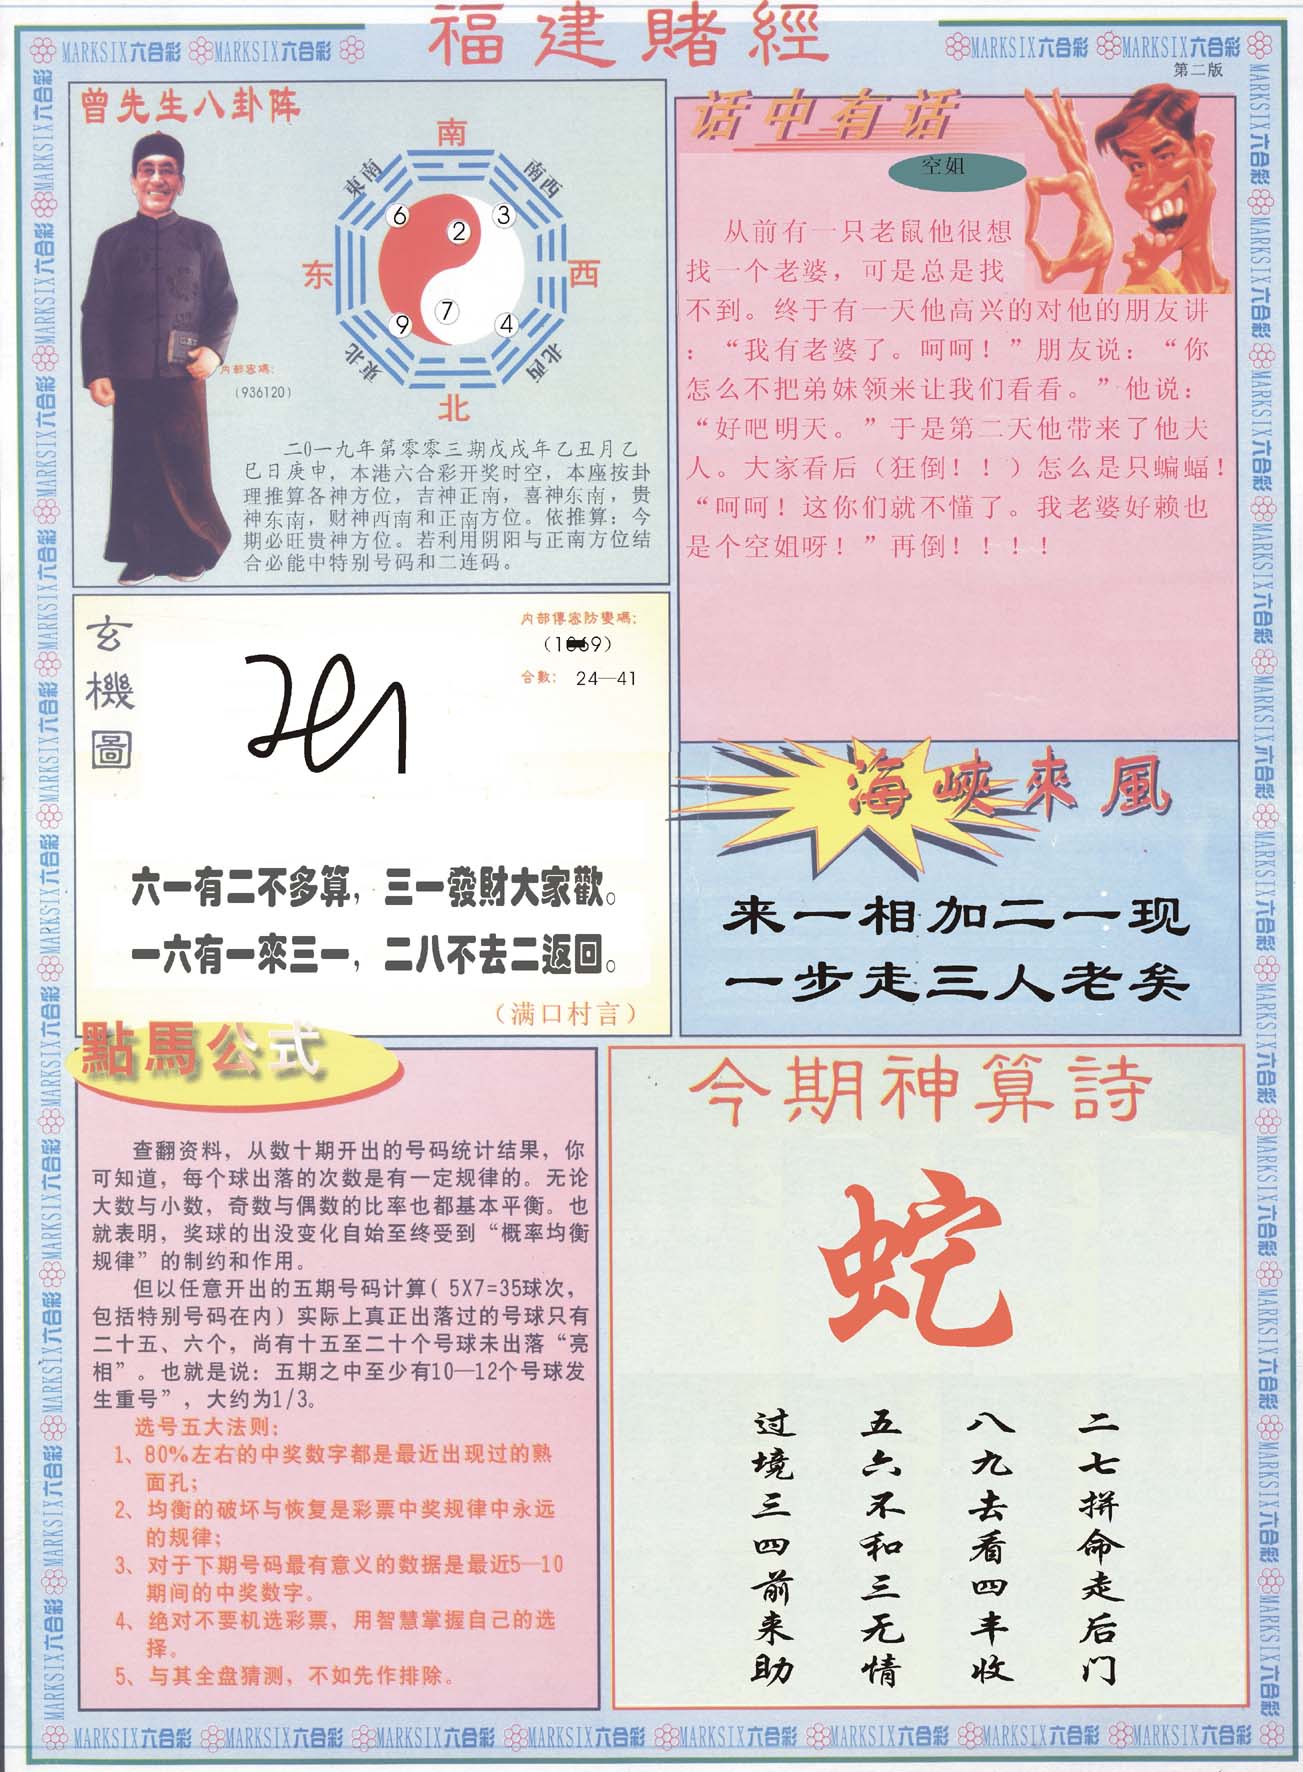 福建賭經
MARKSIX六合彩 MARKSIX六合彩
MARKSIX六合彩 MARKSIX六合彩
第二版
曾先生八卦阵
南
東南
南西
6
2
3
东
西
9
7
4
東北
北西
北
内部密碼:
(936120)
二0一九年第零零三期戊戌年乙丑月乙
巳日庚申，本港六合彩开奖时空，本座按卦
理推算各神方位，吉神正南，喜神东南，贵
神东南，财神西南和正南方位。依推算：今
期必旺贵神方位。若利用阴阳与正南方位结
合必能中特别号码和二连码。
话中有话
空姐
从前有一只老鼠他很想
找一个老婆，可是总是找
不到。终于有一天他高兴的对他的朋友讲
：“我有老婆了。呵呵！”朋友说：“你
怎么不把弟妹领来让我们看看。”他说：
“好吧明天。”于是第二天他带来了他夫
人。大家看后（狂倒！！）怎么是只蝙蝠！
“呵呵！这你们就不懂了。我老婆好赖也
是个空姐呀！”再倒！！！！
玄機圖
内部傳密防變碼:
合數: 24—41
六一有二不多算，三一發財大家歡。
一六有一來三一，二八不去二返回。
（满口村言）
海峽來風
来一相加二一现
一步走三人老矣
點馬公式
查翻资料，从数十期开出的号码统计结果，你
可知道，每个球出落的次数是有一定规律的。无论
大数与小数，奇数与偶数的比率也都基本平衡。也
就表明，奖球的出没变化自始至终受到“概率均衡
规律”的制约和作用。
但以任意开出的五期号码计算( 5X7=35球次,
包括特别号码在内）实际上真正出落过的号球只有
二十五、六个，尚有十五至二十个号球未出落“亮
相”。也就是说：五期之中至少有10—12个号球发
生重号”，大约为1/3。
选号五大法则：
1、80%左右的中奖数字都是最近出现过的熟
面孔；
2、均衡的破坏与恢复是彩票中奖规律中永远
的规律；
3、对于下期号码最有意义的数据是最近5—10
期间的中奖数字。
4、绝对不要机选彩票，用智慧掌握自己的选
择。
5、与其全盘猜测，不如先作排除。
今期神算詩
蛇
二七拼命走后门
八九去看四丰收
五六不和三无情
过境三四前来助
MARKSIX六合彩 MARKSIX六合彩 MARKSIX六合彩 MARKSIX六合彩 MARKSIX六合彩 MARKSIX六合彩 MARKSIX六合彩 MARKSIX六合彩